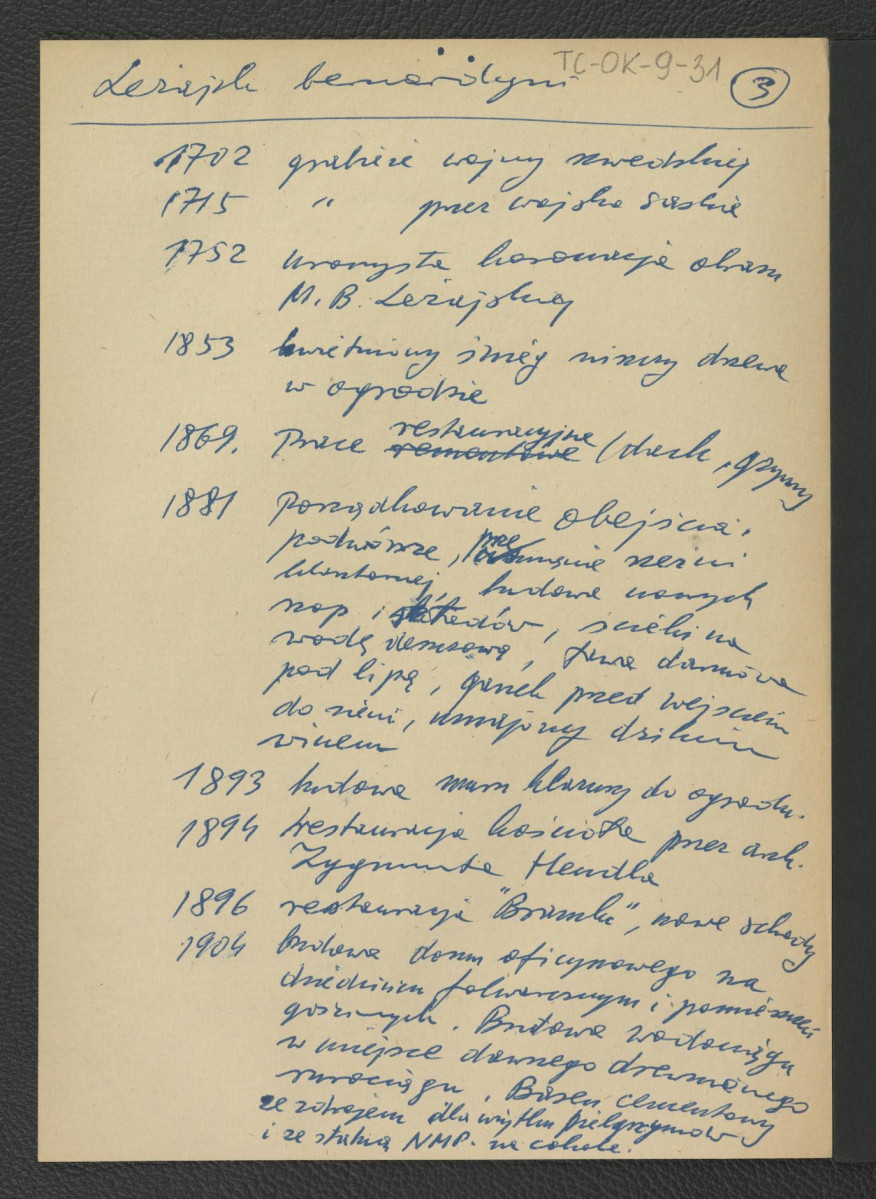 TC-OK-9-31
Leżajsk bernardyni 3
1702 grabieże wojny szwedzkiej
1715 " przez wojska saskie
1752 uroczysta koronacja obrazu
M. B. Leżajskiej
1853 kwietniowy śnieg niszczy drzewa
w ogrodzie
1869. Prace restauracyjne remontowe (dach, gzymsy
1881 Porządkowanie obejścia,
podwórze, szerni
klasztornej, budowa nowych
szop i składów, ścieki na
wodę deszczową, ława darniowa
pod lipą, ganek przed wejściem
do sieni, umajony dzikim
winem
1893 budowa muru klauzury do ogrodu.
1894 restauracja kościoła przez arch.
Zygmunta Hendla
1896 restauracja "Bramki", nowe schody
1904 budowa domu oficynowego na
dziedzińcu folwarcznym i pomieszczeń
gościnnych. Budowa wodociągu
w miejsce dawnego drewnianego
rurociągu, Basen cementowy
ze zdrojem dla użytku pielgrzymów
i ze statuą NMP. na cokole.